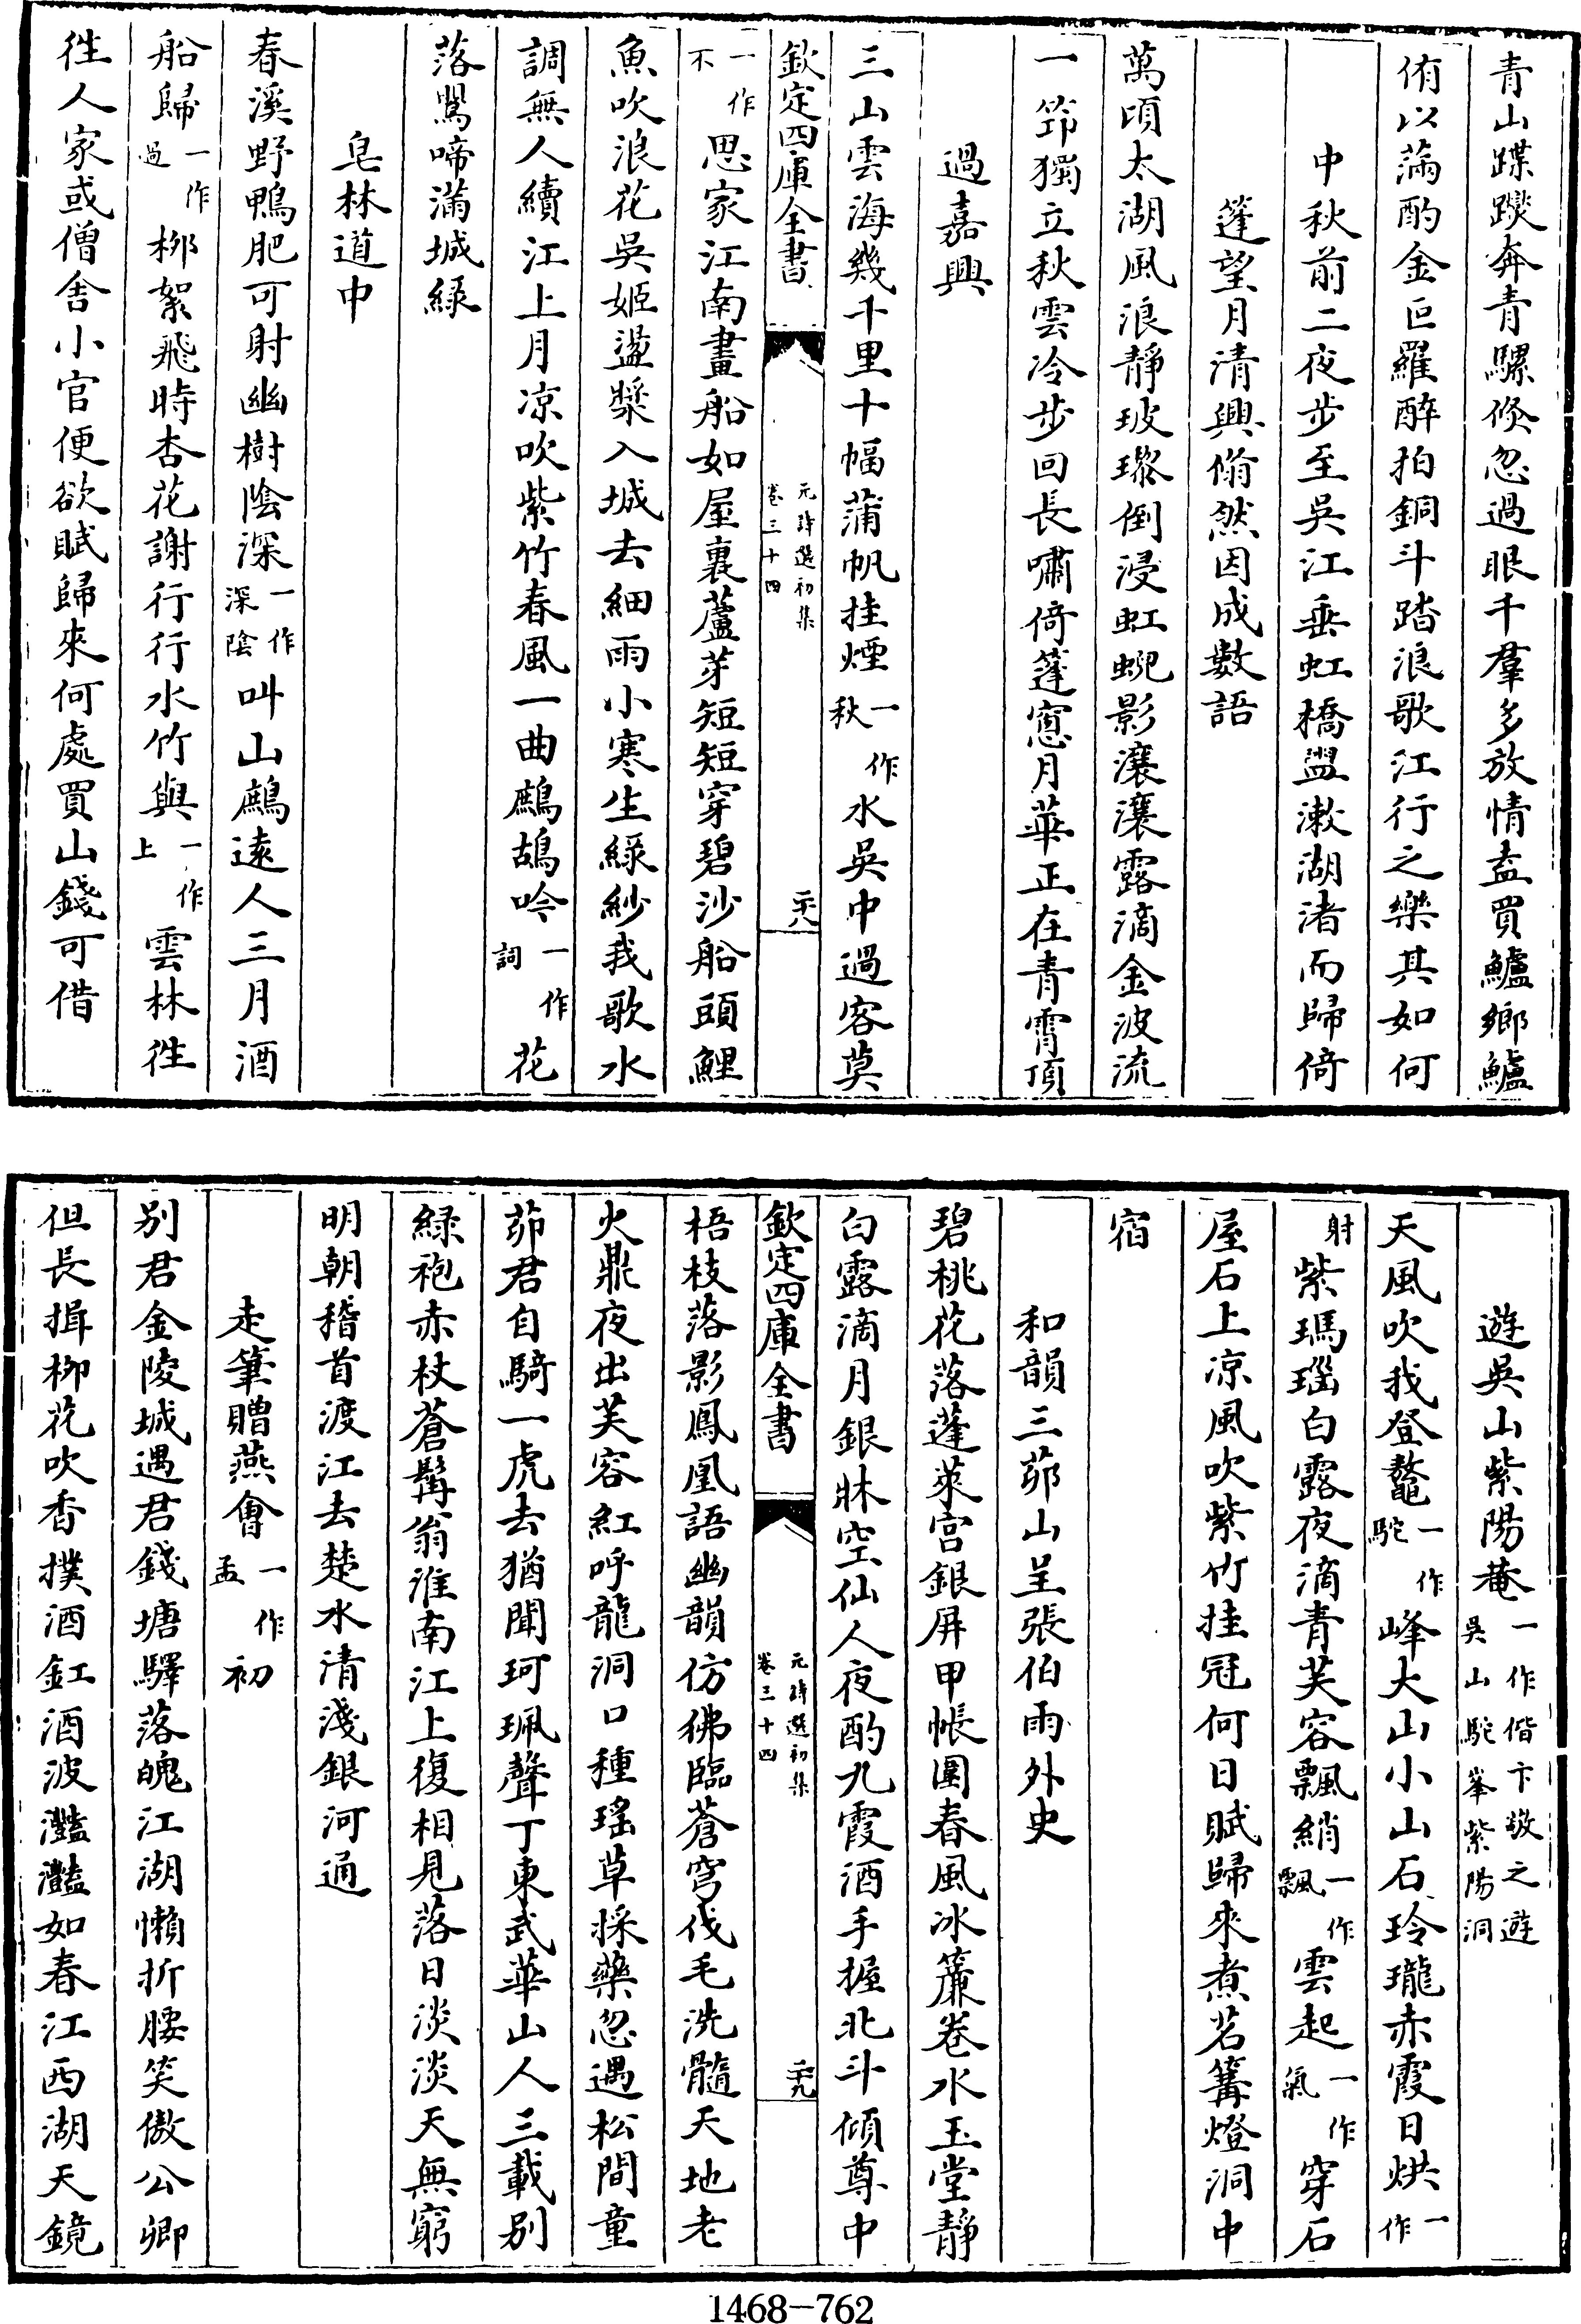 青山蹀躞奔青騾倐忽過眼千羣多放情盍買鱸鄉鱸
侑以滿酌金叵羅醉拍銅斗踏浪歌江行之樂其如何
中秋前二夜步至吳江垂虹橋盥漱湖渚而歸倚
篷望月清興翛然因成數語
萬頃太湖風浪靜玻瓈倒浸虹蜺影瀼瀼露滴金波流
一笻獨立秋雲冷步回長嘯倚篷窻月華正在青霄頂
過嘉興
三山雲海幾千里十幅蒲帆挂煙一作秋水吳中過客莫
欽定四庫全書 元詩選初集 卷三十四 二十八
一作不思家江南畫船如屋裏蘆芽短短穿碧沙船頭鯉
魚吹浪花吳姬盪槳入城去細雨小寒生緑紗我歌水
調無人續江上月凉吹紫竹春風一曲鷓鴣吟一作詞花
落鸎啼滿城緑
皂林道中
春溪野鴨肥可射幽樹陰深一作深陰叫山鷓遠人三月酒
船歸一作過栁絮飛時杏花謝行行水竹與一作上雲林徃
徃人家或僧舍小官便欲賦歸來何處買山錢可借
遊吳山紫陽菴一作偕卞敬之遊吳山駝峯紫陽洞
天風吹我登鼇一作駝峰大山小山石玲瓏赤霞日烘一作
射紫瑪瑙白露夜滴青芙容飄綃一作飄雲起一作氣穿石
屋石上凉風吹紫竹挂冠何日賦歸來煮茗篝燈洞中
宿
和韻三茆山呈張伯雨外史
碧桃花落蓬萊宮銀屏甲帳圍春風冰簾卷水玉堂靜
白露滴月銀牀空仙人夜酌九霞酒手握北斗傾尊中
欽定四庫全書 元詩選初集 卷三十四 二十九
梧枝落影鳳凰語幽韻仿彿臨蒼穹伐毛洗髓天地老
火鼎夜出芙容紅呼龍洞口種瑶草採藥忽遇松間童
茆君自騎一虎去猶聞珂珮聲丁東武華山人三載别
緑袍赤杖蒼髯翁淮南江上復相見落日淡淡天無窮
明朝稽首渡江去楚水清淺銀河通
走筆贈燕會一作孟初
别君金陵城遇君錢塘驛落魄江湖懶折腰笑傲公卿
但長揖栁花吹香撲酒缸酒波灩灩如春江西湖天鏡
1468-762